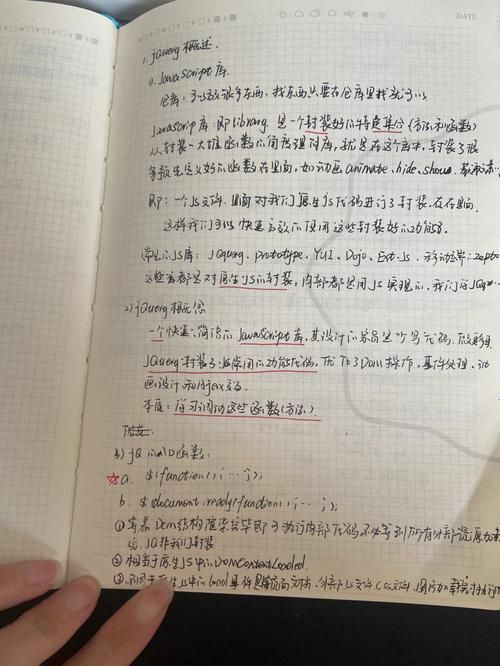 DATE
1. jQuery 概述.
1). JavaScript 库.
仓库: 可以放很多东西, 找东西只要在仓库里找就可以
Javascrip库: 即library, 是一个封装好的特定集合(方法和函数)
从封装一大堆函数的角度理解库, 就是在这个库中, 封装了很
多预先定义好的函数在里面, 如动画animate、hide、show、
即: 一个JS文件, 里面对我们原生js代码进行了封装, 存在里面.
这样我们可以快速高效的使用这些封装好的功能了.
常见的JS库: JQuery、prototype、YUI、Dojo、Ext JS、移动端的zepto
这些库都是对原生JS的封装, 内部都是用JS实现的, 我们学JQ
2) jQuery 概念
一个快速、简洁的JavaScript库, 其设计的宗旨是"
JQuery 封装了JS常用的功能代码, 优化了Dom操作, 事件处理、动
画设计和Ajax交互.
本质: 学习调用这些函数(方法).
3) jQ 的入口函数:
☆a. $(function(){…});
b. $(document).ready(function(){…});
①等着Dom结构渲染完毕即可执行内部代码不必等到所有外部资源加载
完, JQ帮我们封装
②相当于原生JS中的DOMContentLoaded.
③不同于原生JS中的load 外部JS文件、Css文件、图片加载完